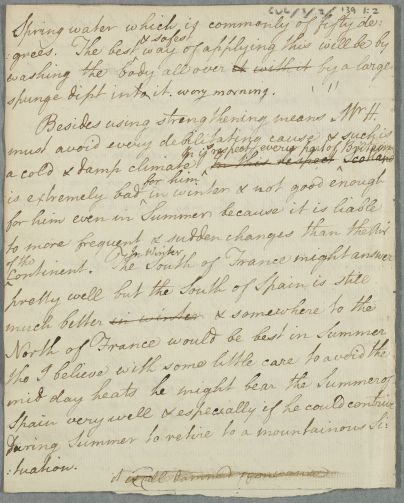 CUL/1/2/139 1:2
Spring water which is commonly of fifty de:
& safest
:grees. The best way of applying this will be by
washing the body all over it with it by a large
spunge dipt into it. every morning.
Besides using strengthening means Mr H.
must avoid every debilitating cause & such is
in ys respect every part of Britain
a cold & damp climate in this respect Scotland
for him
is extremely bad in winter & not good enough
for him even in Summer because it is liable
to more frequent & sudden changes than the Air
of the
Continent. In Winter The South of France might answer
pretty well but the South of Spain is still
much better in winter & somewhere to the
North of France would be best in Summer
tho I believe with some little care to avoid the
mid day heats he might bear the Summer of
Spain very well & especially if he could contrive
During Summer to retire to a mountainous Si
:tuation.